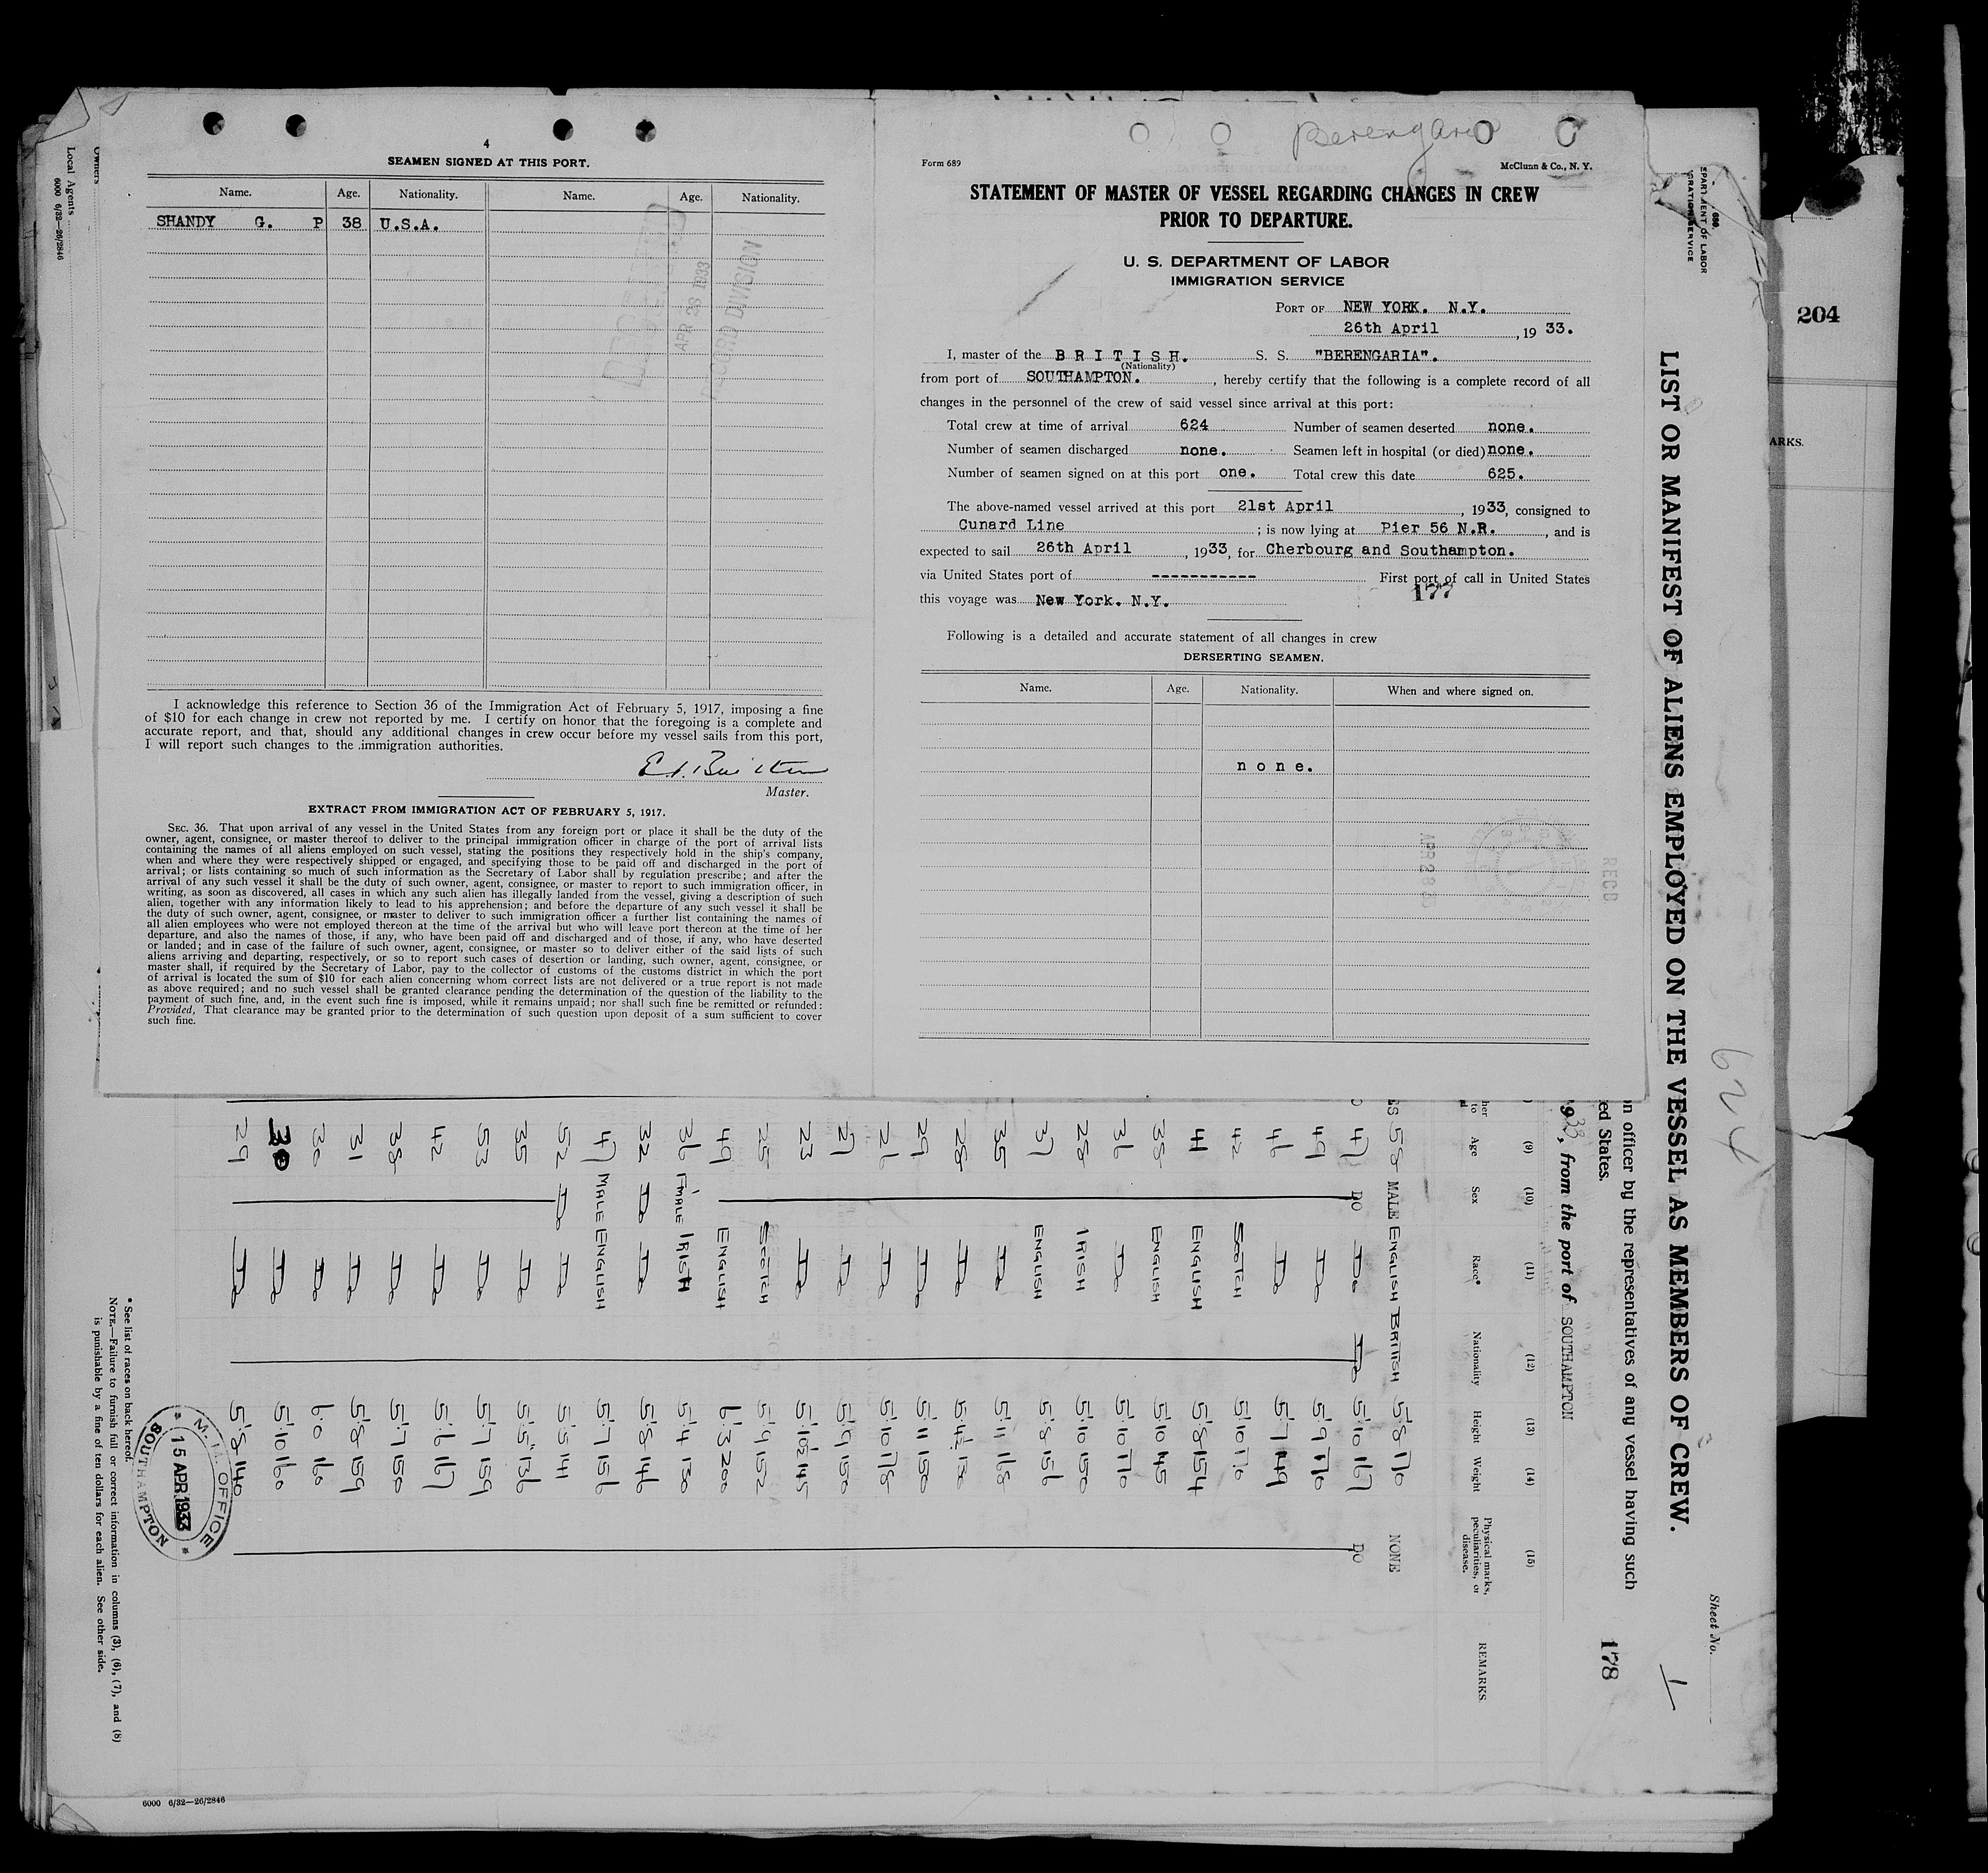 4
SEAMEN SIGNED AT THIS PORT.
Name. Age. Nationality. Name. Age. Nationality.
SHANDY G. P 38 U.S.A.
I acknowledge this reference to Section 36 of the Immigration Act of February 5, 1917, imposing a fine
of $10 for each change in crew not reported by me. I certify on honor that the foregoing is a complete and
accurate report, and that, should any additional changes in crew occur before my vessel sails from this port,
I will report such changes to the immigration authorities.
Master.
EXTRACT FROM IMMIGRATION ACT OF FEBRUARY 5, 1917.
SEC. 36. That upon arrival of any vessel in the United States from any foreign port or place it shall be the duty of the
owner, agent, consignee, or master thereof to deliver to the principal immigration officer in charge of the port of arrival lists
containing the names of all aliens employed on such vessel, stating the positions they respectively hold in the ship's company,
when and where they were respectively shipped or engaged, and specifying those to be paid off and discharged in the port of
arrival; or lists containing so much of such information as the Secretary of Labor shall by regulation prescribe; and after the
arrival of any such vessel it shall be the duty of such owner, agent, consignee, or master to report to such immigration officer, in
writing, as soon as discovered, all cases in which any such alien has illegally landed from the vessel, giving a description of such
alien, together with any information likely to lead to his apprehension; and before the departure of any such vessel it shall be
the duty of such owner, agent, consignee, or master to deliver to such immigration officer a further list containing the names of
all alien employees who were not employed thereon at the time of the arrival but who will leave port thereon at the time of her
departure, and also the names of those, if any, who have been paid off and discharged and of those, if any, who have deserted
or landed; and in case of the failure of such owner, agent, consignee, or master so to deliver either of the said lists of such
aliens arriving and departing, respectively, or so to report such cases of desertion or landing, such owner, agent, consignee, or
master shall, if required by the Secretary of Labor, pay to the collector of customs of the customs district in which the port
of arrival is located the sum of $10 for each alien concerning whom correct lists are not delivered or a true report is not made
as above required; and no such vessel shall be granted clearance pending the determination of the question of the liability to the
payment of such fine, and, in the event such fine is imposed, while it remains unpaid; nor shall such fine be remitted or refunded:
Provided, That clearance may be granted prior to the determination of such question upon deposit of a sum sufficient to cover
such fine.
APR 28 1933
RECORD DIVISION
Berengaria
Form 689 McClunn & Co., N. Y.
STATEMENT OF MASTER OF VESSEL REGARDING CHANGES IN CREW
PRIOR TO DEPARTURE.
U. S. DEPARTMENT OF LABOR
IMMIGRATION SERVICE
PORT OF NEW YORK. N.Y.
26th April, 1933.
I, master of the BRITISH. S. S. "BERENGARIA".
(Nationality)
from port of SOUTHAMPTON., hereby certify that the following is a complete record of all
changes in the personnel of the crew of said vessel since arrival at this port:
Total crew at time of arrival 624 Number of seamen deserted none.
Number of seamen discharged none. Seamen left in hospital (or died) none.
Number of seamen signed on at this port one. Total crew this date 625.
The above-named vessel arrived at this port 21st April, 1933, consigned to
Cunard Line; is now lying at Pier 56 N.R., and is
expected to sail 26th April, 1933, for Cherbourg and Southampton.
via United States port of ----------- First port of call in United States
177
this voyage was New York. N.Y.
Following is a detailed and accurate statement of all changes in crew
DERSERTING SEAMEN.
Name. Age. Nationality. When and where signed on.
none.
RECD
Owners
Local Agents
6000 6/32—26/2846
204
ARKS.
LIST OR MANIFEST OF ALIENS EMPLOYED ON THE VESSEL AS MEMBERS OF CREW.
624
Sheet No. 1
178
n officer by the representatives of any vessel having such
ed States.
933, from the port of SOUTHAMPTON
(9) (10) (11) (12) (13) (14) (15)
Age Sex Race* Nationality Height Weight Physical marks, peculiarities, or disease. REMARKS
58 MALE ENGLISH BRITISH 5'8 170 NONE
47 DO Do Do 5'10 167 DO
49 Do 5'9 170
46 Do 5'7 149
42 SCOTCH 5'10 170
41 ENGLISH 5'8 154
38 ENGLISH 5'10 145
36 Do 5'10 170
28 IRISH 5'10 150
37 ENGLISH 5'8 156
35 Do 5'11 168
28 Do 5'4½ 130
29 Do 5'11 150
26 Do 5'10 178
27 Do 5'9 150
23 Do 5'10½ 145
25 SCOTCH 5'9 152
49 ENGLISH 6'3 200
36 F'MALE IRISH 5'4 130
32 Do Do 5'8 146
47 MALE ENGLISH 5'7 156
52 Do Do 5'5 141
35 Do 5'5 136
53 Do 5'7 159
42 Do 5'6 167
38 Do 5'7 150
31 Do 5'8 159
30 Do 6'0 160
30 Do 5'10 160
29 Do 5'8 140
* See list of races on back hereof.
NOTE.—Failure to furnish full or correct information in columns (3), (6), (7), and (8)
is punishable by a fine of ten dollars for each alien. See other side.
OFFICE
15 APR 1933
SOUTHAMPTON
6000 6/32—26/2846